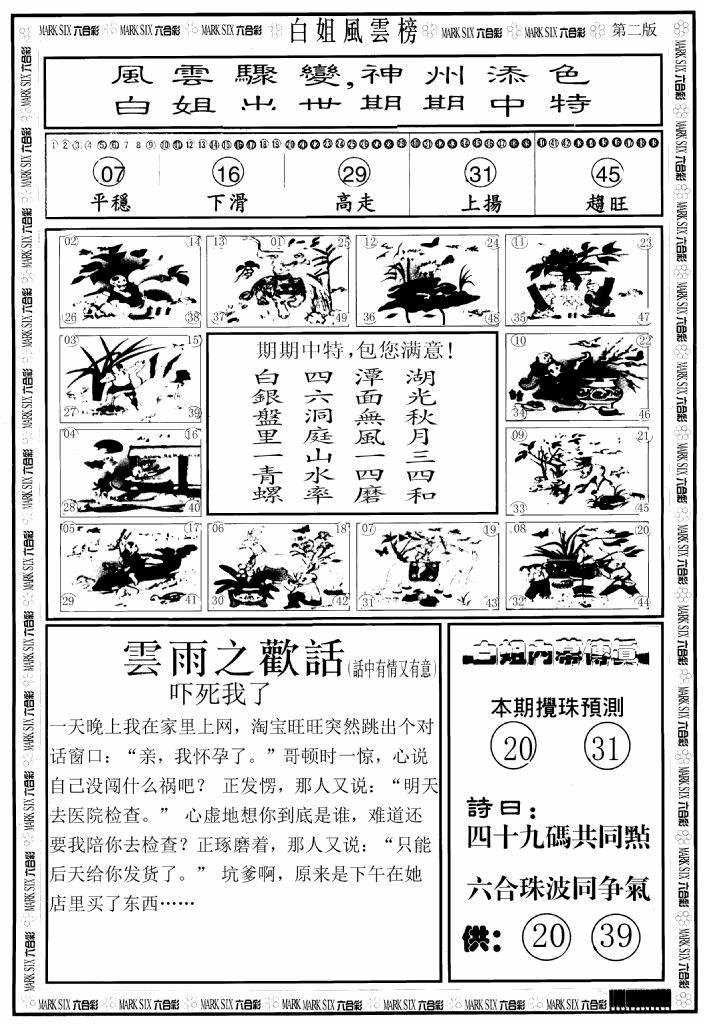 MARK SIX 六合彩 MARK SIX 六合彩 MARK SIX 六合彩 白姐風雲榜 MARK SIX 六合彩 MARK SIX 六合彩 第二版
風雲驟變,神州添色
白姐出世期期中特
07 16 29 31 45
平穩 下滑 高走 上揚 趨旺
02 14 26 38
13 01 25 37 49
12 24 36 48
11 23 35 47
03 15 27 39
10 22 34 46
04 16 28 40
09 21 33 45
05 17 29 41
06 18 30 42
07 19 31 43
08 20 32 44
期期中特,包您满意!
湖光秋月三四和
潭面無風一四磨
四六洞庭山水率
白銀盤里一青螺
雲雨之歡話(話中有情又有意)
吓死我了
一天晚上我在家里上网，淘宝旺旺突然跳出个对
话窗口：“亲，我怀孕了。”哥顿时一惊，心说
自己没闯什么祸吧？ 正发愣，那人又说：“明天
去医院检查。” 心虚地想你到底是谁，难道还
要我陪你去检查？正琢磨着，那人又说：“只能
后天给你发货了。” 坑爹啊，原来是下午在她
店里买了东西……
白姐内幕傳真
本期攪珠預測
20 31
詩曰：
四十九碼共同點
六合珠波同争氣
供： 20 39
MARK SIX 六合彩 MARK SIX 六合彩 MARK SIX 六合彩 MARK SIX 六合彩 MARK SIX 六合彩 MARK SIX 六合彩 MARK SIX 六合彩